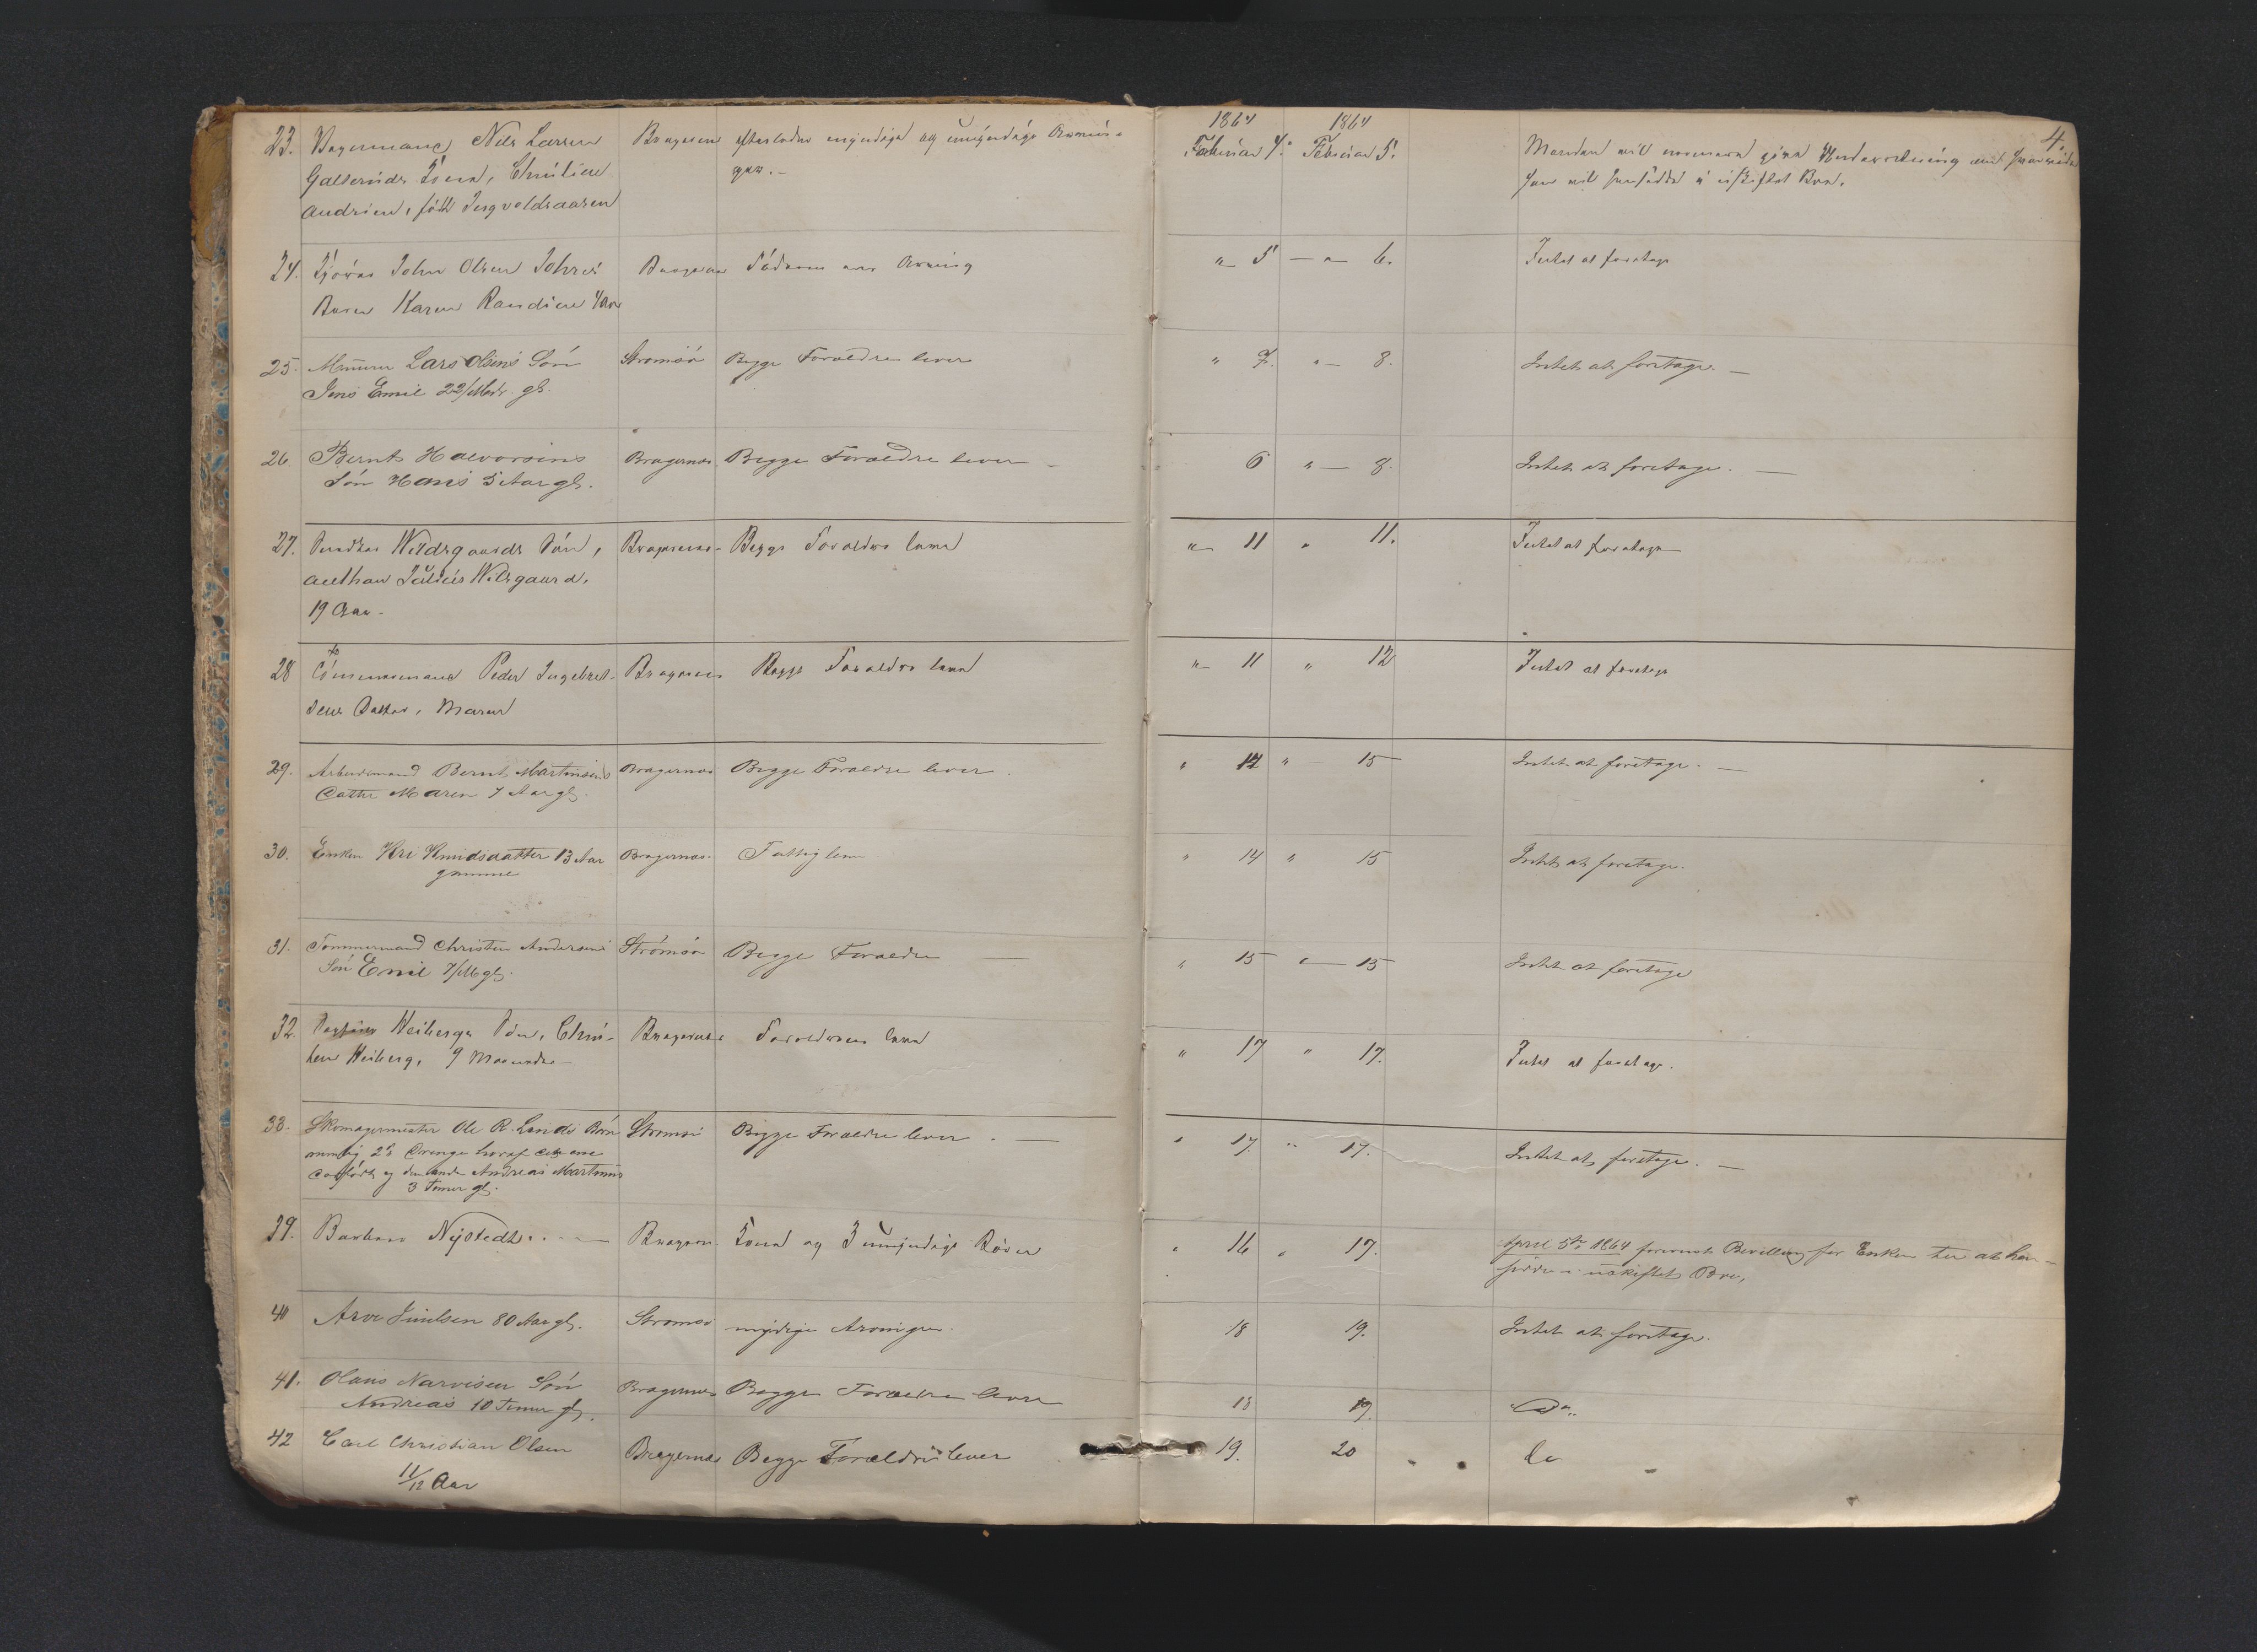 4.
1864 1864
23. Vognmand Nils Larsen Bragernes efterlader myndige og umyndige Arvin- Februar 4. Februar 5. Manden vil nærmere give Underretning om hvorvidt
Galteruds Kone, Christine ger.- han vil hensidde i uskiftet Boe.
Andrine, født Ingvoldsaasen
24. John Olsen Bragernes Faderen er Arving " 5 - " 6. Intet at foretage
Barn Karen Randine 4 Aar
25. Murer Lars Olsens Søn Strømsø Begge Forældre lever " 7. " - 8. Intet at foretage. -
Jens Emil 22/Mdr. gl.
26. Bernt Halvorsens Bragernes. Begge Forældre lever - 6 " - 8. Intet at foretage. -
Søn Hans 5 Aar gl.
27. Søn, Bragernes- Begge Forældre leve " 11 " 11. Intet at foretage
Anthon Julius
19 Aar.
28 Tømmermand Peder Ingebret- Bragernes Begge Forældre leve " 11 " 12 Intet at foretage
sens Datter, Maren
29. Arbeidsmand Bernt Martinsens Bragernes Begge Forældre lever. " 12 " 15 Intet at foretage. -
Datter Maren 7 Aar gl.
30. Enken Kri Knudsdatter 13 Aar Bragernes. Fattiglem " 14 " 15 Intet at foretage.
gammel
31. Tømmermand Christen Andersens Strømsø Begge Forældre - " 15 " - 15 Intet at foretage
Søn Emil 7/M gl.
32. Heibergs Søn, Chris- Bragernes Forældrene leve " 17 " 17. Intet at foretage.
ten Heiberg, 9 Maaneder
33. Skomagermester Ole R. Lunds Børn Strømsø Begge Forældre lever. - " 17. " 17. Intet at foretage. -
nemlig 2 Drenge hvoraf den ene
dødfødt og den anden Andreas Martinius
3 Timer gl.
39. Nystedt. . . - Bragern Kone og 3 umyndige Børn " 16 " 17. April 5te 1864 forevist Bevilling for Enken til at hen-
sidde i uskiftet Boe,
40 Arve Juulsen 80 Aar gl. Strømsø myndige Arvinger. 18 19. Intet at foretage.
41. Olaus Narvesen Søn Bragernes Begge Forældre lever 18 19. Do.
Andreas 10 Timer gl.
42 Carl Christian Olsen Bragernes Begge Forældre lever 19. 20 do
11/12 Aar